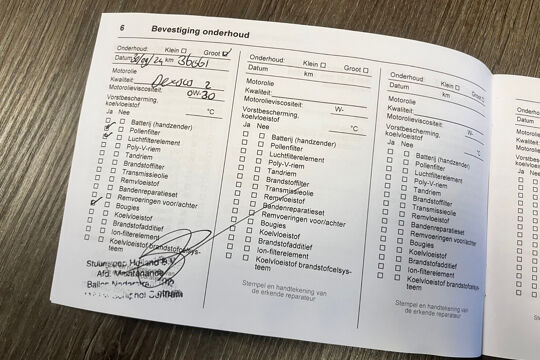 6 Bevestiging onderhoud
Onderhoud: Klein Groot
Datum 24 km 36661
Motorolie
Kwaliteit: Dexos 2
Motorolieviscositeit: 0W-30
Vorstbescherming, koelvloeistof °C
Ja Nee
Batterij (handzender)
Pollenfilter
Luchtfilterelement
Poly-V-riem
Tandriem
Brandstoffilter
Transmissieolie
Remvloeistof
Bandenreparatieset
Remvoeringen voor/achter
Bougies
Koelvloeistof
Brandstofadditief
Ion-filterelement
Koelvloeistof brandstofcelsys-
teem
Holland B.V.
Afd.
Onderhoud: Klein Groot
Datum km
Motorolie
Kwaliteit:
Motorolieviscositeit: W-
Vorstbescherming,
koelvloeistof °C
Ja Nee
Batterij (handzender)
Pollenfilter
Luchtfilterelement
Poly-V-riem
Tandriem
Brandstoffilter
Transmissieolie
Remvloeistof
Bandenreparatieset
Remvoeringen voor/achter
Bougies
Koelvloeistof
Brandstofadditief
Ion-filterelement
Koelvloeistof brandstofcelsys-
teem
Stempel en handtekening van
de erkende reparateur
Onderhoud: Klein Groot
Datum km
Motorolie
Kwaliteit:
Motorolieviscositeit: W-
Vorstbescherming,
koelvloeistof °C
Ja Nee
Batterij (handzender)
Pollenfilter
Luchtfilterelement
Poly-V-riem
Tandriem
Brandstoffilter
Transmissieolie
Remvloeistof
Bandenreparatieset
Remvoeringen voor/achter
Bougies
Koelvloeistof
Brandstofadditief
Ion-filterelement
Koelvloeistof brandstofcelsys-
teem
Stempel en handtekening van
de erkende reparateur